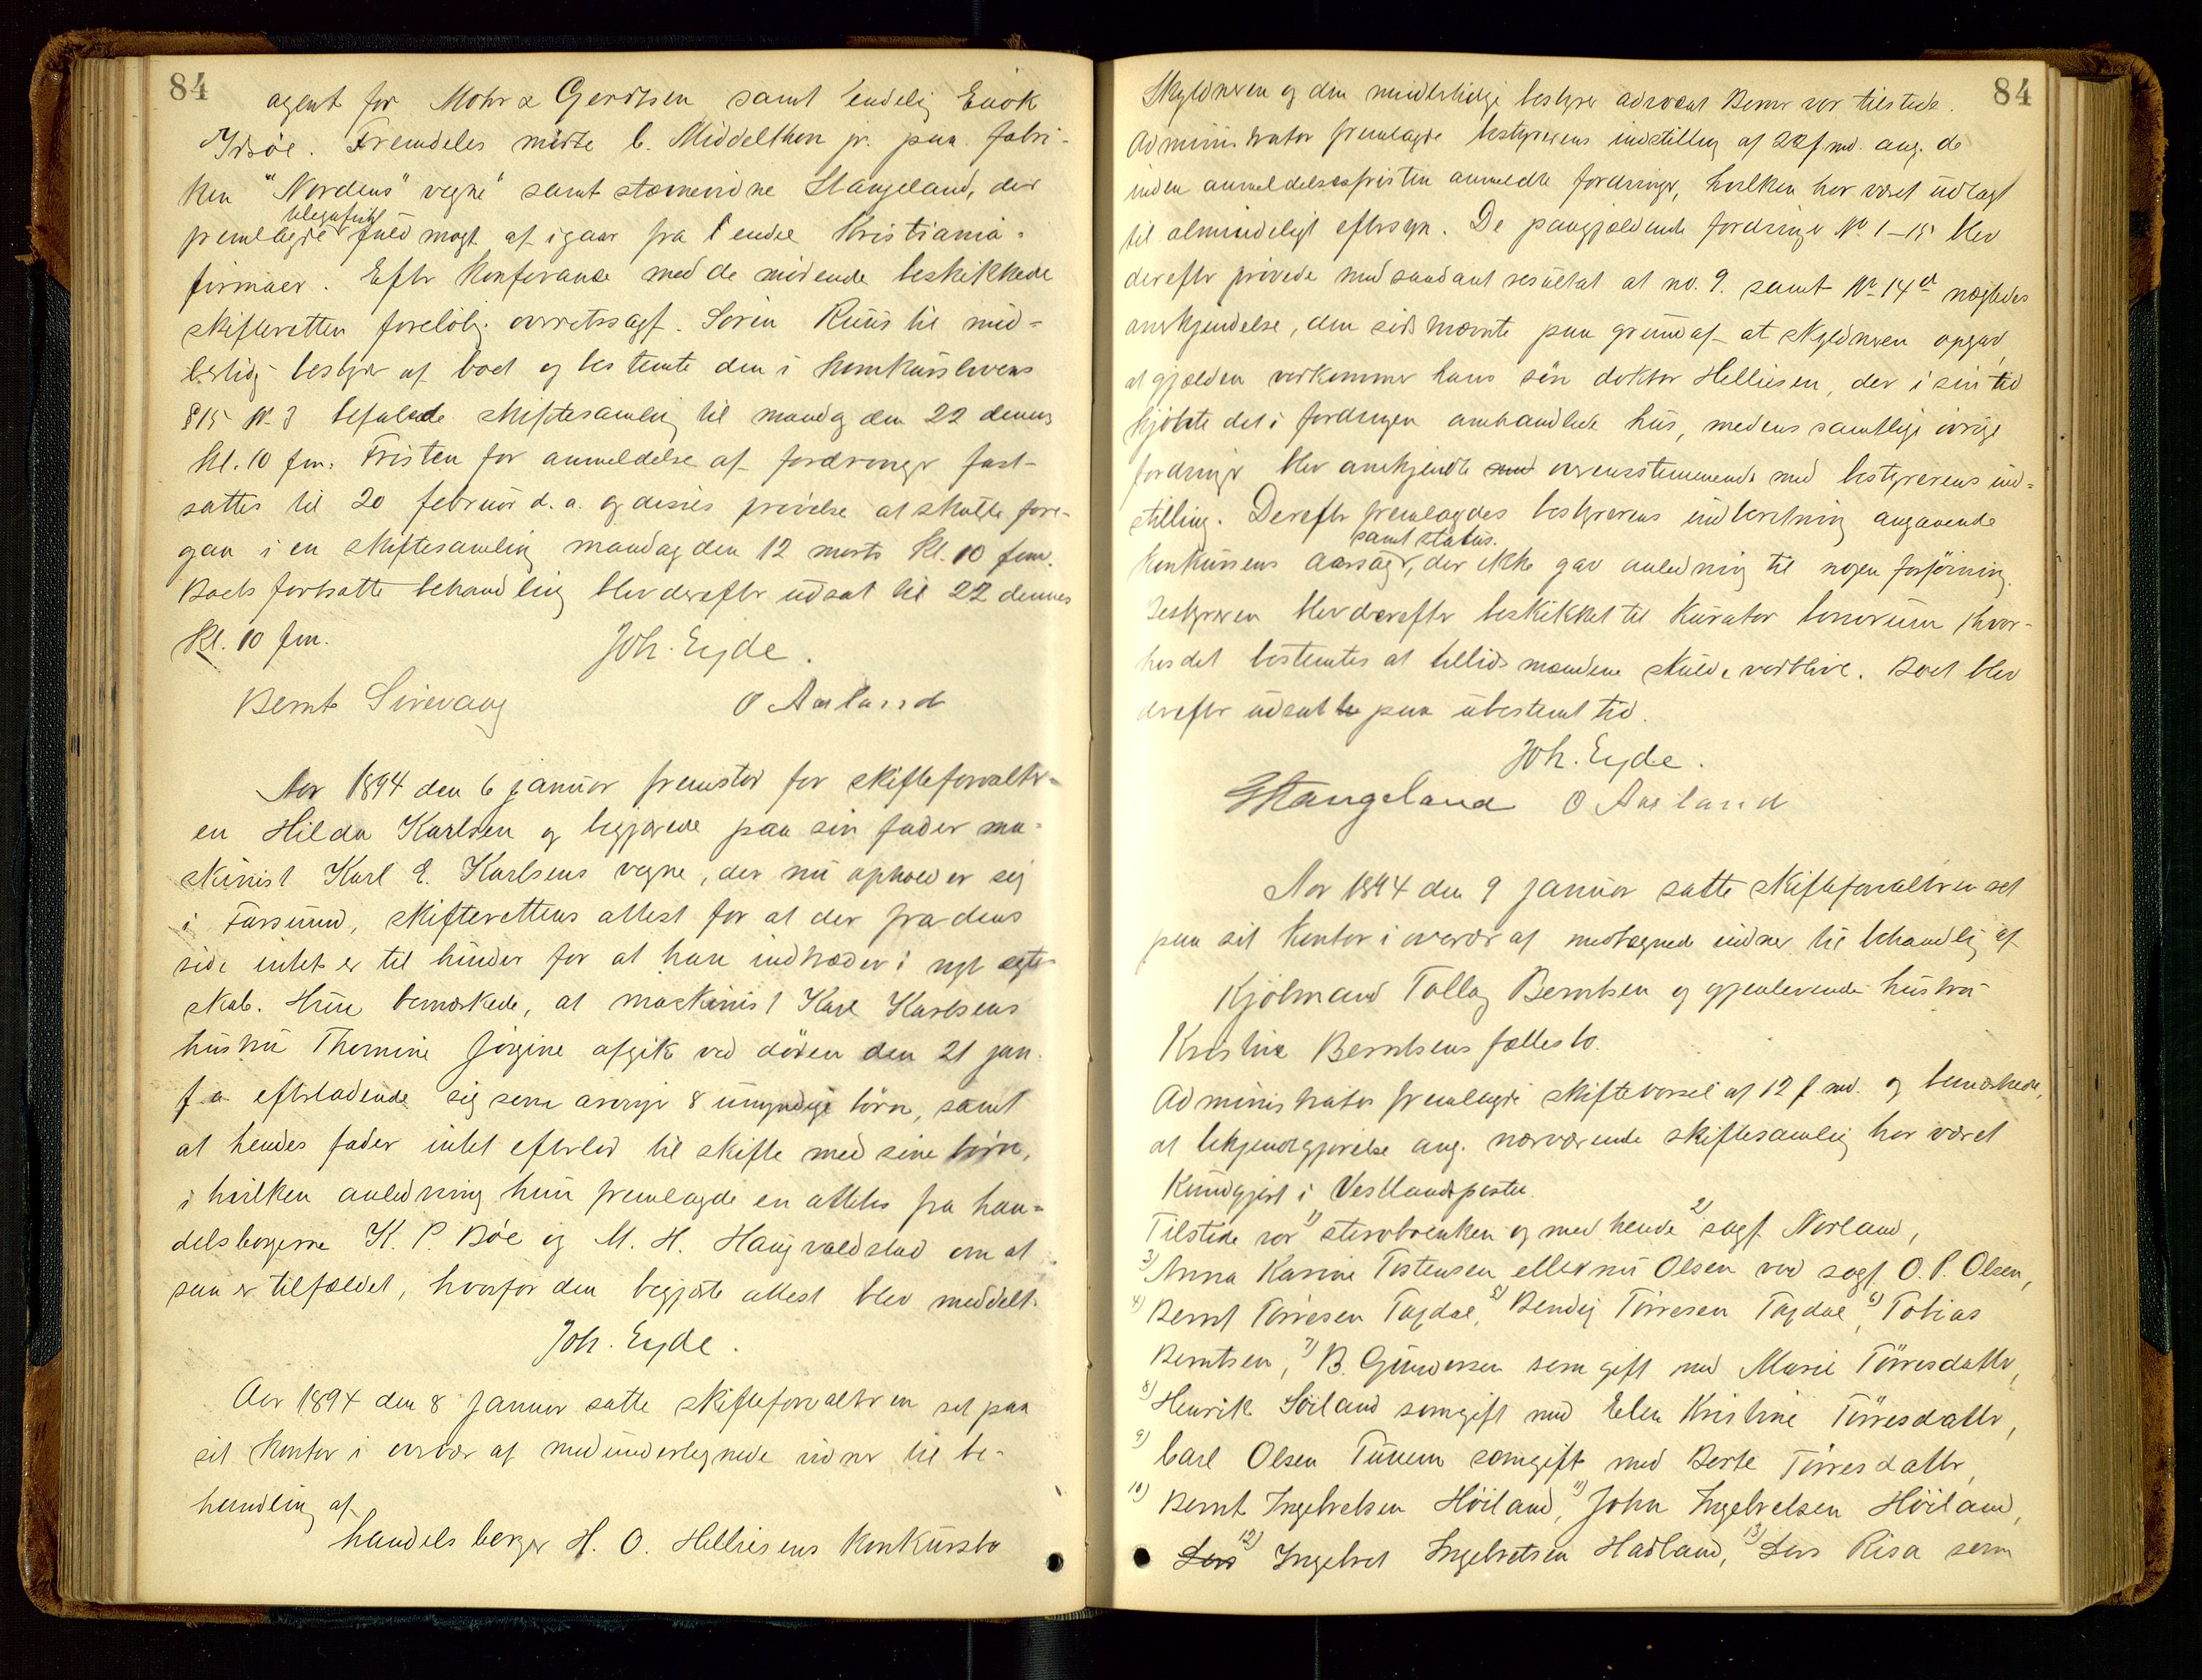 84
agent for Mohr & Gerdtsen samt endelig Enok
Idsöe. Fremdeles mödte C. Middelthon jr. paa fabri-
ken "Nordens" vegne samt stævnevidne Stangeland, der
telegrafisk
fremlagde fuldmagt af igaar fra endel Kristiania-
firmaer. Efter konferance med de mödende beskikkede
skifteretten foreløbig overretssagf. Sören Ruus til mid-
lertidig bestyrer af boet og bestemte den i konkurslovens
§15 N. 3 befalede skiftesamling til mandag den 22 dennes
kl. 10 fm. Fristen for anmeldelse af fordringer fast-
sattes til 20 februar d. a. og disses prövelse at skulle fore-
gaa i en skiftesamling mandag den 12 marts kl. 10 fm.
Boets fortsatte behandling blev derefter udsat til 22 dennes
kl. 10 fm.
Joh. Eyde.
Bernt Sirevaag O Aarland
Aar 1894 den 6 januar fremstod for skifteforvalter-
en Hilda Karlsen og begjærede paa sin fader ma-
skinist Karl E. Karlsens vegne, der nu opholder sig
i Farsund, skifterettens attest for at der fra dens
side intet er til hinder for at han indtræder i nyt ægte-
skab. Hun bemærkede, at maskinist Karl Karlsens
hustru Thomine Jörgine afgik ved döden den 21 jan.
f. a. efterladende sig som arvinger 8 umyndige börn, samt
at hendes fader intet efterlod til skifte med sine börn,
i hvilken anledning hun fremlagde en attest fra han-
delsborgerne K. P. Böe og M. H. Haugvaldstad om at
saa er tilfældet, hvorfor den begjærte attest blev meddelt.
Joh. Eyde.
Aar 1894 den 8 januar satte skifteforvalteren ret paa
sit kontor i overvær af medundertegnede vidner til be-
handling af
handelsborger H. O. Helliesens konkursbo
84
Skyldneren og den midlertidige bestyrer advocat Berner var tilstede.
Administrator fremlagde bestyrerens indstilling af 22 f. md. ang. de
inden anmeldelsesfristen anmeldte fordringer, hvilken har været udlagt
til almindeligt eftersyn. De paagjældende fordringer No 1-15 blev
derefter prövede med saadant resultat at no. 9. samt No 14 d nægtedes
anerkjendelse, den sidstnævnte paa grund af at skyldneren opgav,
at gjælden vedkommer hans sön doktor Helliesen, der i sin tid
kjöbte det i fordringen omhandlede hus, medens samtlige övrige
fordringer blev anerkjendte med overensstemmende med bestyrerens ind-
stilling. Derefter fremlagdes bestyrerens indberetning angaaende
samt status.
konkursens aarsager, der ikke gav anledning til nogen forföining.
Bestyreren blev derefter beskikket til kurator bonorum, hvor-
hos det bestemtes at tillidsmændene skulde vedblive. Boet blev
derefter udsat paa ubestemt tid.
Joh. Eyde.
Stangeland O Aarland
Aar 1894 den 9 januar satte skifteforvalteren ret
paa sit kontor i overvær af medtegnede vidner til behandlig af
Kjölmand Tallag Berntsen og gjenlevende hustru
Kristine Berntsens fællesbo.
Administrator fremlagde skiftevarsel af 12 f. md. og bemærkede,
at bekjendtgjörelse ang. nærværende skiftesamling har været
kundgjort i Vestlandsposten.
Tilstede var 1) stervboenken og med hende 2) sagf. Norland,
3) Anna Karine Tostensen eller nu Olsen ved sagf. O. P. Olsen,
4) Bernt Törresen Tagdal, 5) Bendig Törresen Tagdal, 6) Tobias
Berntsen, 7) B. Gundersen som gift med Marie Törresdatter,
8) Henrik Söiland som gift med Elen Kristine Törresdatter,
9) Carl Olsen Tunem som gift med Berte Törresdatter,
10) Bernt Ingebretsen Höiland, 11) John Ingebretsen Höiland,
Lars 12) Ingebret Ingebretsen Hadland, 13) Lars Risa som